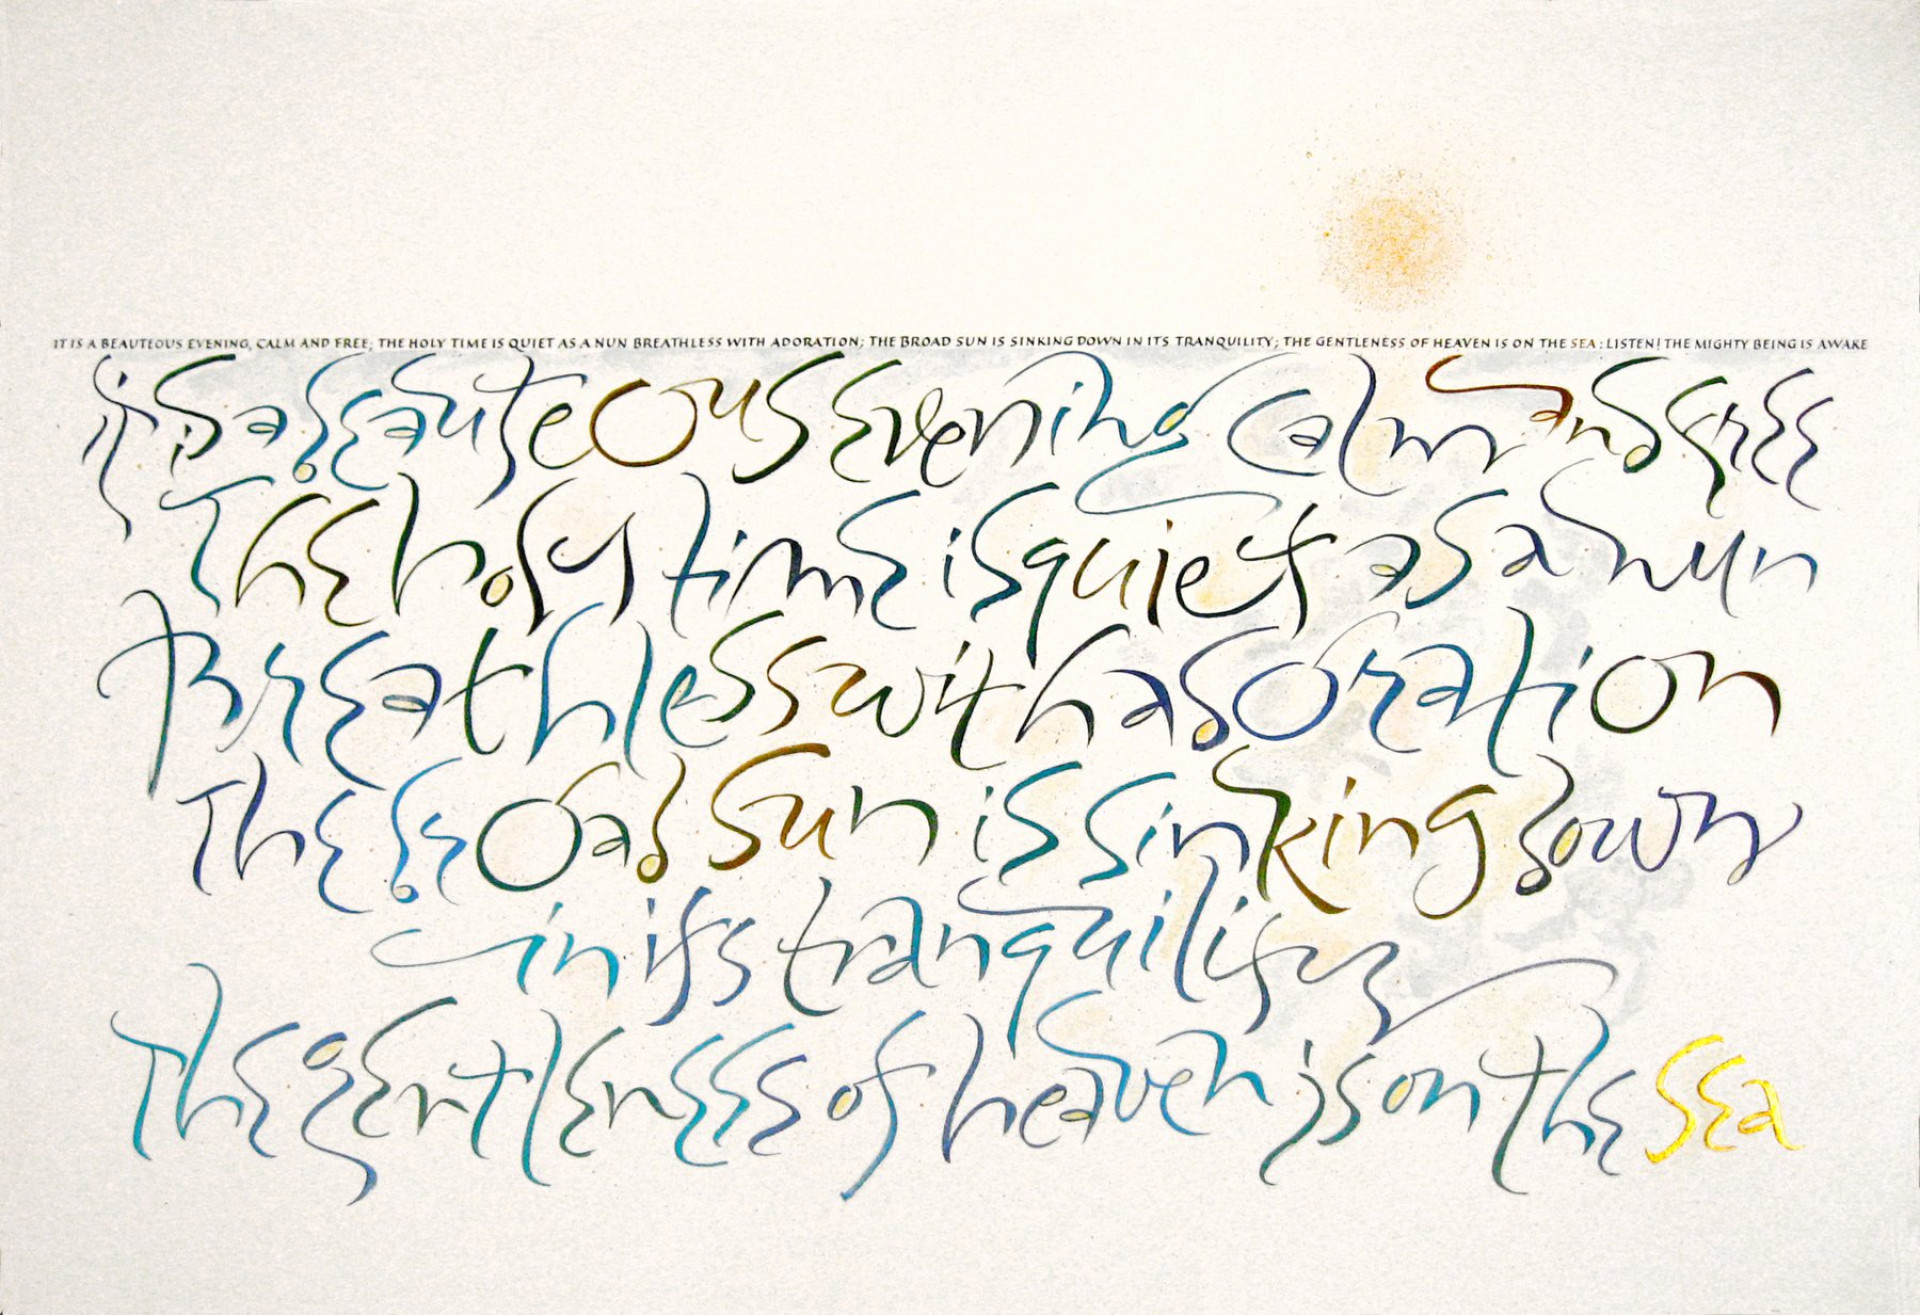 IT IS A BEAUTEOUS EVENING, CALM AND FREE; THE HOLY TIME IS QUIET AS A NUN BREATHLESS WITH ADORATION; THE BROAD SUN IS SINKING DOWN IN ITS TRANQUILITY; THE GENTLENESS OF HEAVEN IS ON THE SEA: LISTEN! THE MIGHTY BEING IS AWAKE
it is a beauteous evening calm and free
The holy time is quiet as a nun
Breathless with adoration
The broad sun is sinking down
in its tranquility
The gentleness of heaven is on the sea